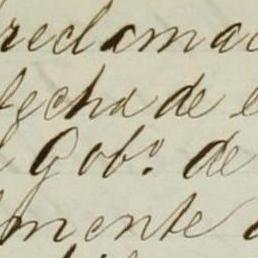 reclama
fecha de e
Gob.º de
mente